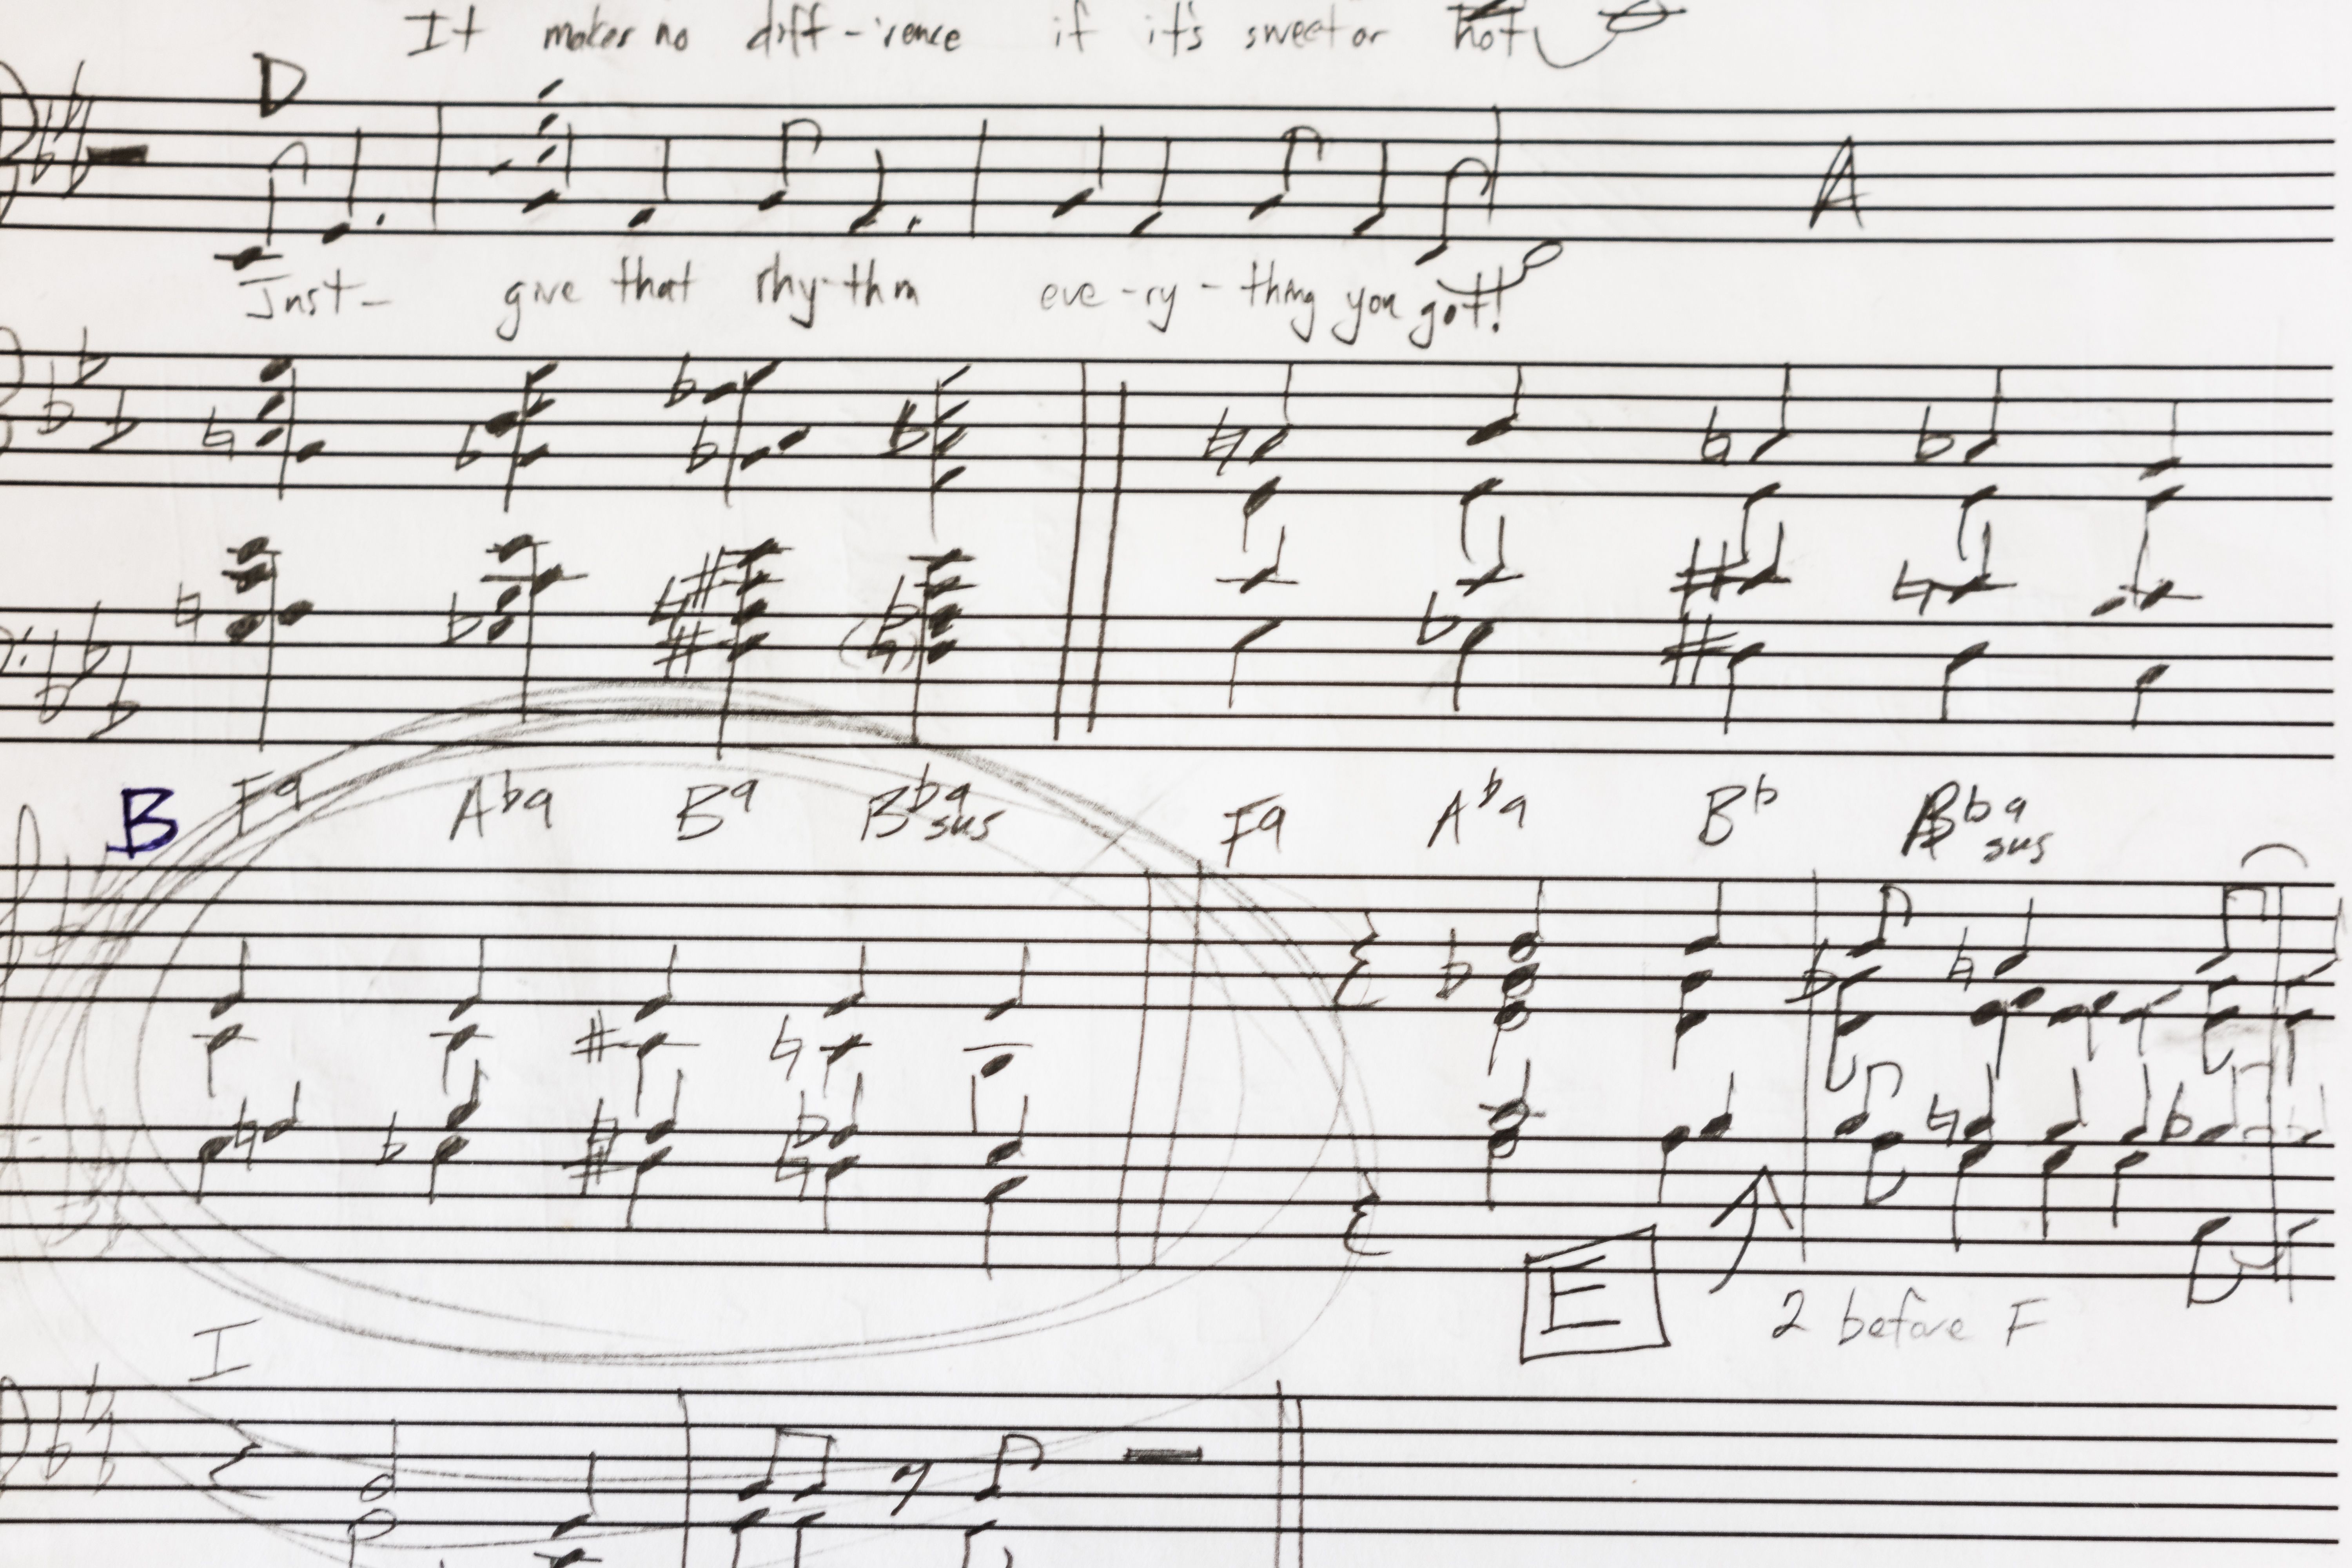 It makes no diff-'rence if it's sweet or hot
D
A
Just- give that rhy-thm eve-ry-thing you got!
B F9 Ab9 B9 Bb9sus F9 Ab9 Bb Bb9sus
E
2 before F
I